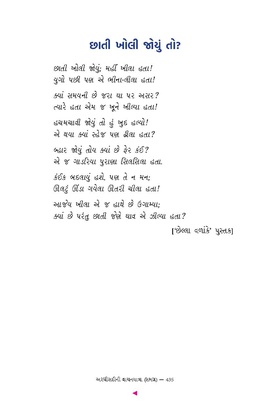 છાતી ખોલી જોયું તો?
છાતી ખોલી જોયું; મહીં ખીલા હતા!
યુગો પછી પણ એ ભીના-લીલા હતા!
ક્યાં સમયની છે જરા યે પર અસર?
ત્યારે હતા એમ જ ખૂને ખીલ્યા હતા!
હચમચાવી જોયું તો હું ખુદ હલ્યો!
એ થયા ક્યાં સ્હેજ પણ ઢીલા હતા?
બ્હાર જોયું તોય ક્યાં છે ફેર કંઈ?
એ જ ગાડરિયા પુરાણા સિલસિલા હતા.
કંઈક બદલાયું હશે, પણ તે ન મન;
ઊલટું ઊંડા ગયેલા ઊતરી ચીલા હતા!
આજેય ખીલા એ જ હાથે છે ઉગામ્યા;
ક્યાં છે પરંતુ છાતી જેણે ઘાવ એ ઝીલ્યા હતા?
['છેલ્લા વળાંકે' પુસ્તક]
— 435